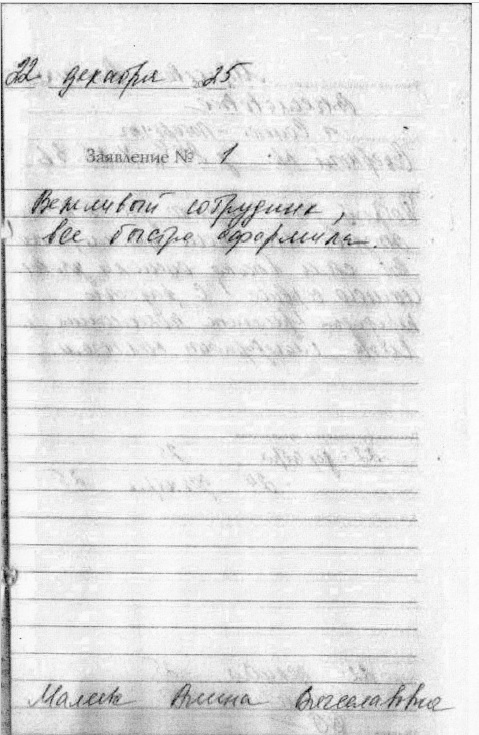 22 декабря 25
Заявление № 1
Вежливый сотрудник,
все быстро оформила.
Вячеславовна